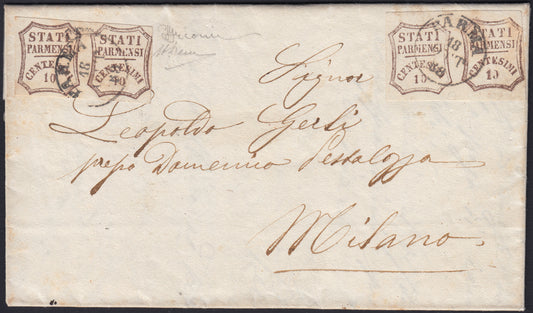 STATI PARMENSI CENTESIMI 10
STATI PARMENSI CENTESIMI 40
STATI PARMENSI CENTESIMI 10
STATI PARMENSI CENTESIMI 10
PARMA
18
PARMA
18
Signor
Leopoldo Gerli
presso Domenico Pestalozza
Milano